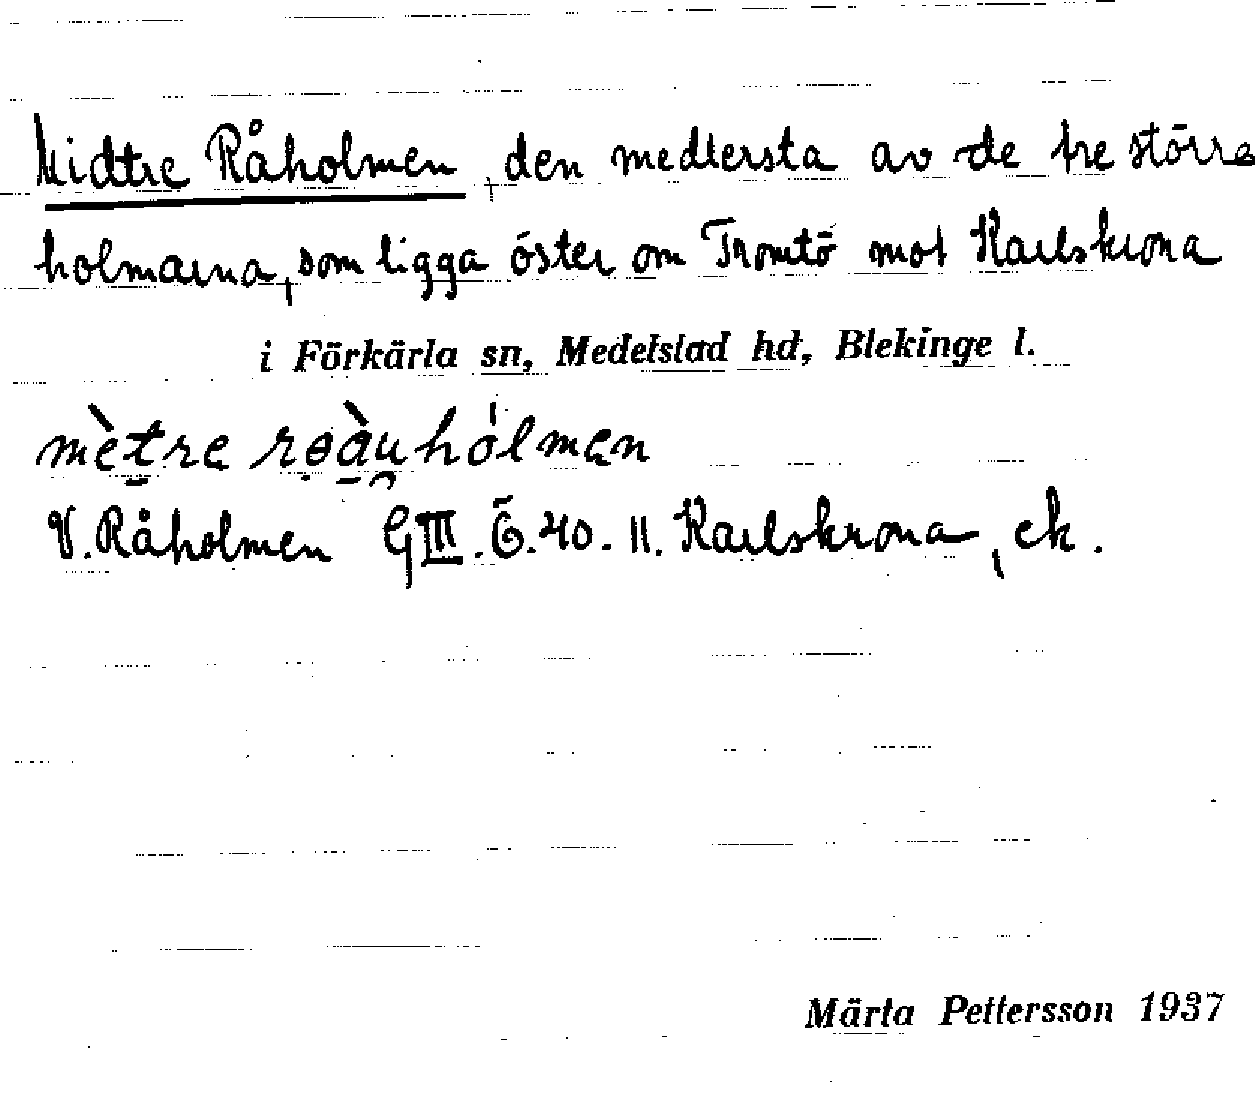 Midtre Råholmen, den medtersta av de tre större
holmarna, som ligga öster om Tromtö mot Karlskrona
i Förkärla sn, Medelstad hd, Blekinge l.
mètre roàuhólmen
V. Råholmen GIII. Ö. 40. 11. Karlskrona, ek.
Märta Pettersson 1937